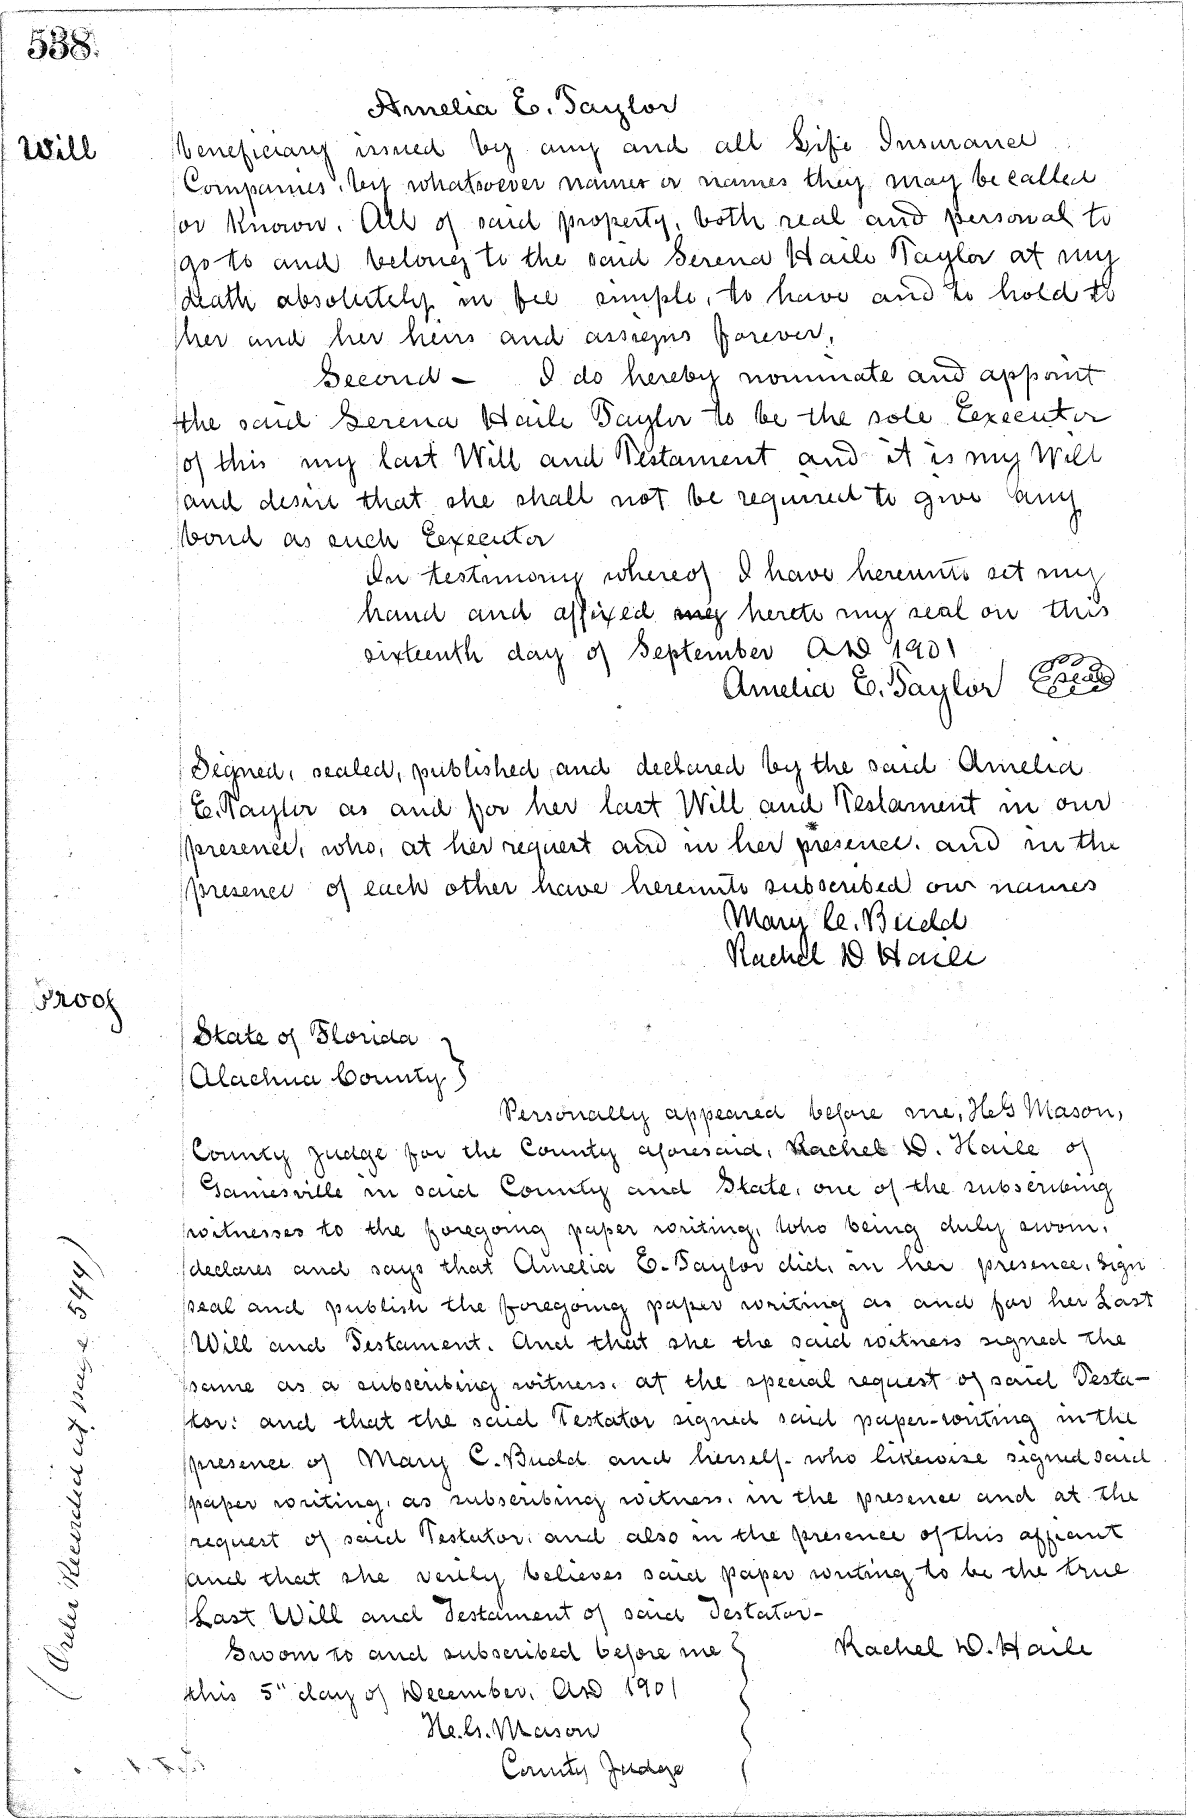 538.
Amelia E. Taylor
Will
beneficiary issued by any and all Life Insurance
Companies, by whatsoever names or names they may be called
or known. All of said property, both real and personal to
go to and belong to the said Serena Haile Taylor at my
death absolutely in fee simple, to have and to hold to
her and her heirs and assigns forever.
Second — I do hereby nominate and appoint
the said Serena Haile Taylor to be the sole Eexecutor
of this my last Will and Testament and it is my Will
and desire that she shall not be required to give any
bond as such Eexecutor
In testimony whereof I have hereunto set my
hand and affixed my hereto my seal on this
sixteenth day of September AD 1901
Amelia E. Taylor Seal
Signed, sealed, published and declared by the said Amelia
E. Taylor as and for her last Will and Testament in our
presence, who, at her request and in her presence, and in the
presence of each other have hereunto subscribed our names
Mary C. Budd
Rachel D Haile
Proof
State of Florida }
Alachua County }
Personally appeared before me, H.G Mason,
County Judge for the County aforesaid, Rachel D. Haile of
Gainesville in said County and State, one of the subscribing
witnesses to the foregoing paper writing, who being duly sworn,
declares and says that Amelia E. Taylor did, in her presence, sign
seal and publish the foregoing paper writing as and for her Last
Will and Testament. And that she the said witness signed the
same as a subscribing witness, at the special request of said Testa-
tor: and that the said Testator signed said paper-writing in the
presence of Mary C. Budd and herself- who likewise signed said
paper writing, as subscribing witness, in the presence and at the
request of said Testator, and also in the presence of this affiant
and that she verily believes said paper writing to be the true
Last Will and Testament of said Testator-
Sworn to and subscribed before me } Rachel D. Haile
this 5" day of December, AD 1901
H.G. Mason
County Judge
(Order Recorded at page 544)